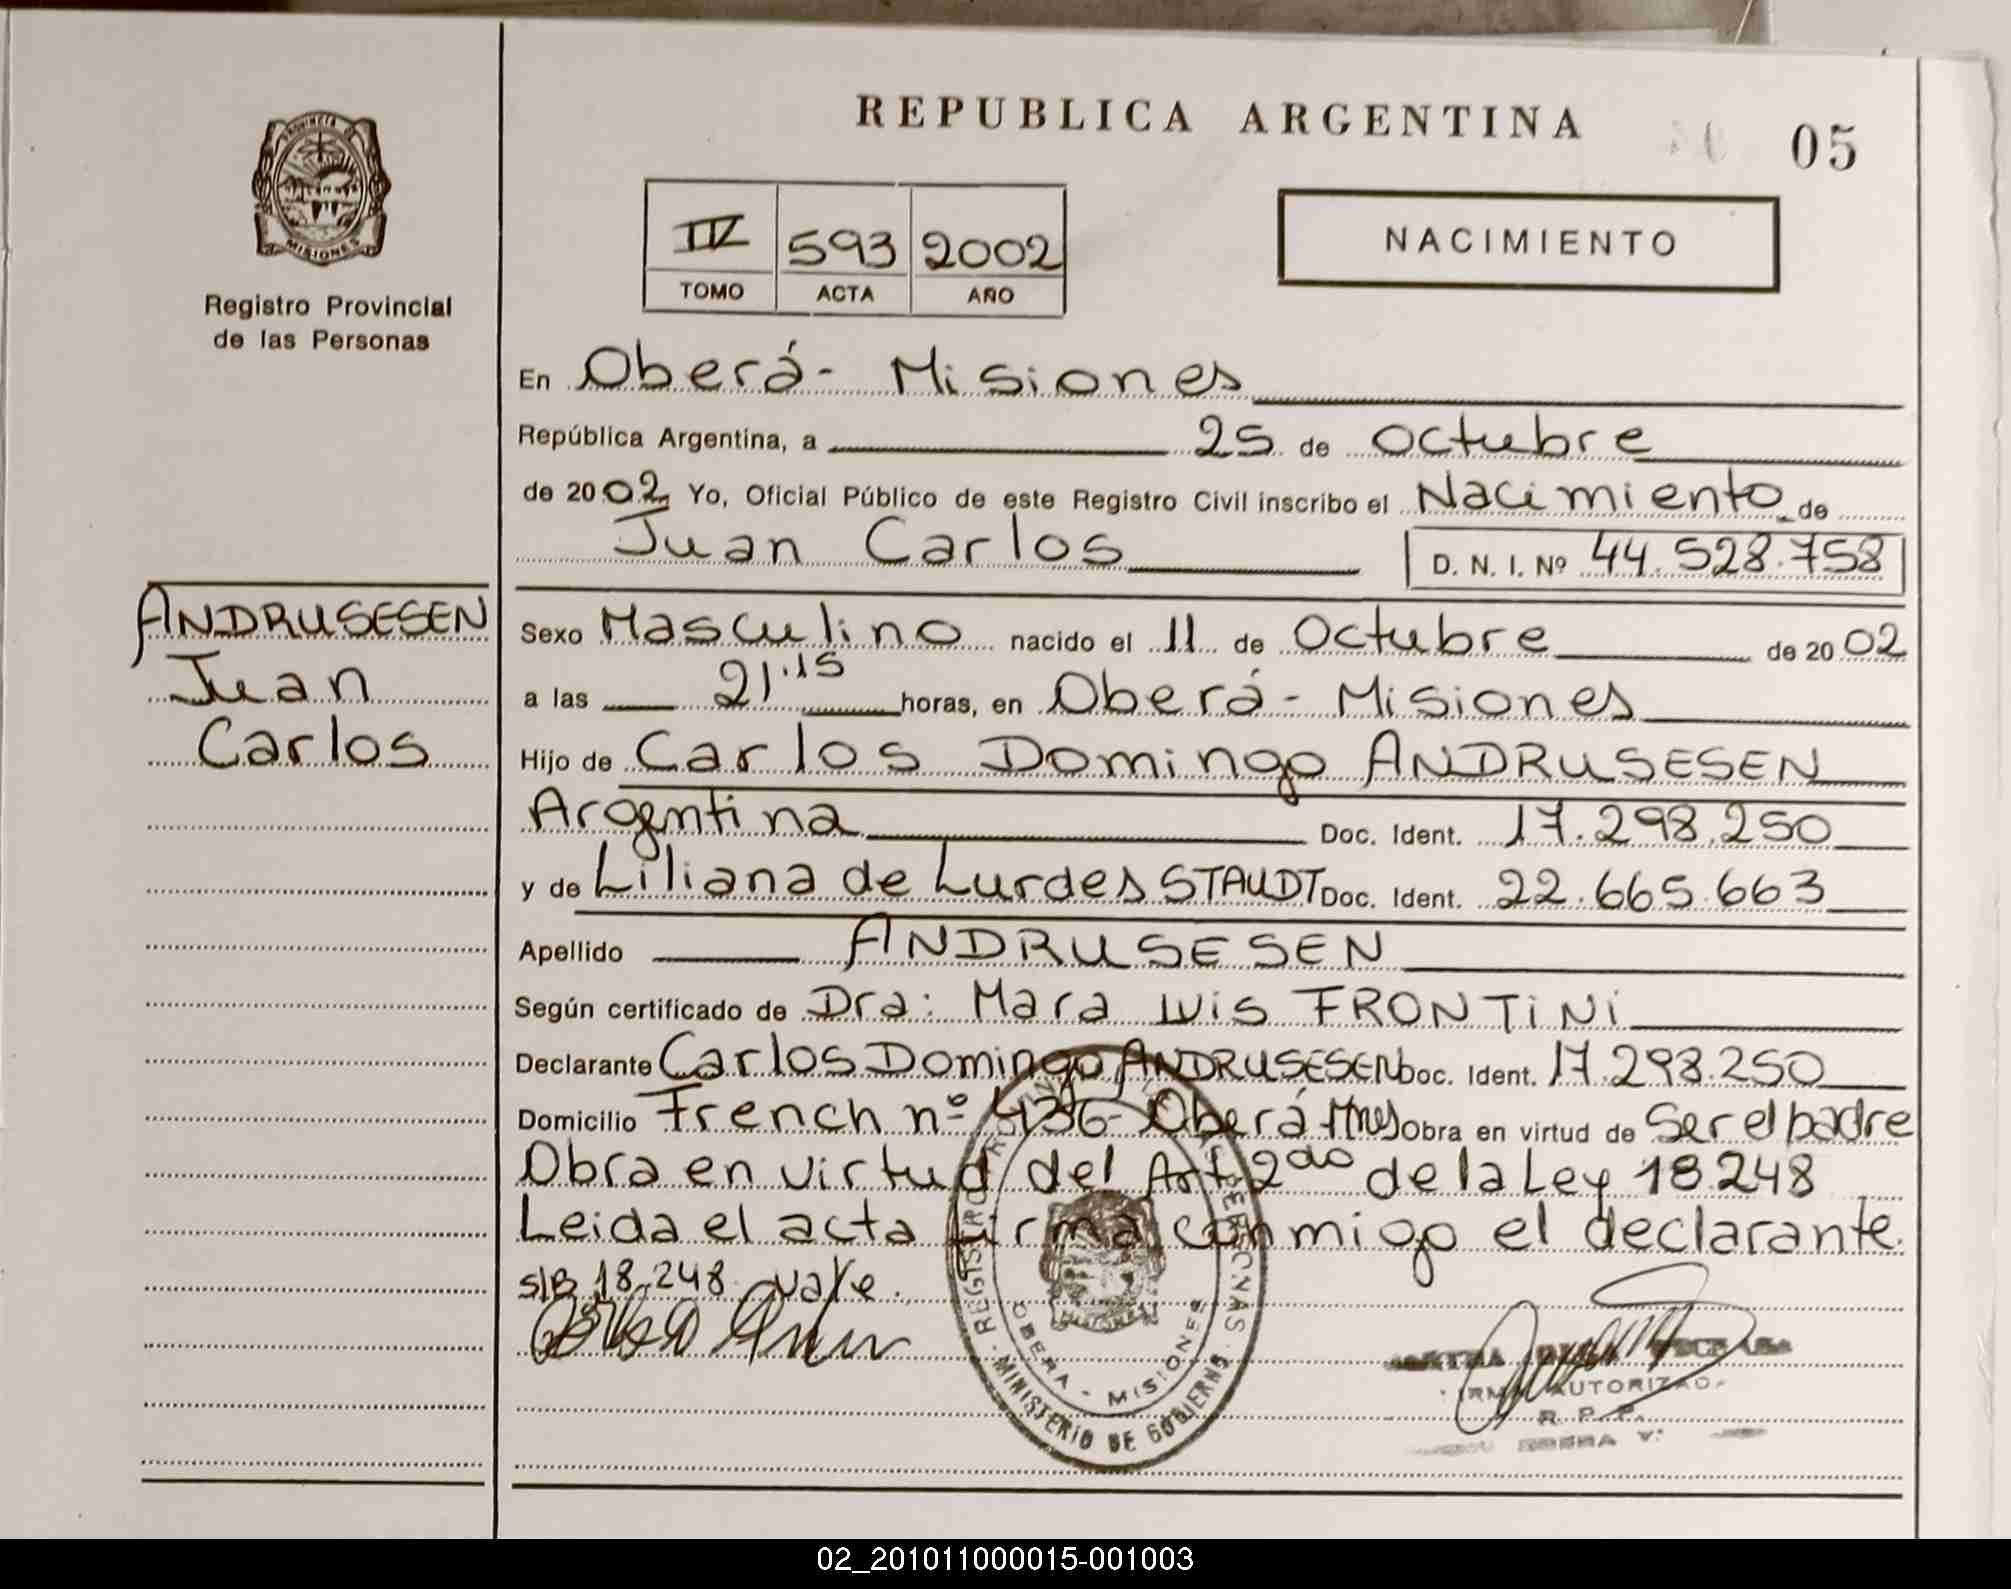 REPUBLICA ARGENTINA
05
PROVINCIA DE
MISIONES
Registro Provincial
de las Personas
III 593 2002
TOMO ACTA AÑO
NACIMIENTO
En Oberá- Misiones
República Argentina, a 25 de Octubre
de 2002 Yo, Oficial Público de este Registro Civil inscribo el Nacimiento de
Juan Carlos D. N. I. Nº 44.528.758
ANDRUSESEN
Juan
Carlos
Sexo Masculino nacido el 11 de Octubre de 2002
a las 21:15 horas, en Oberá- Misiones
Hijo de Carlos Domingo ANDRUSESEN
Argentina Doc. Ident. 17.298.250
y de Liliana de Lurdes STAUDT Doc. Ident. 22.665.663
Apellido ANDRUSESEN
Según certificado de Dra: Mara Luis FRONTINI
Declarante Carlos Domingo ANDRUSESEN Doc. Ident. 17.298.250
Domicilio French nº 436- Oberá Mnes Obra en virtud de Ser el padre
Obra en virtud del Art 2do de la Ley 18.248
Leida el acta firma conmigo el declarante.
s/B 18.248 vale.
MINISTERIO DE GOBIERNO
OBERA - MISIONES
R. P. P.
02_201011000015-001003